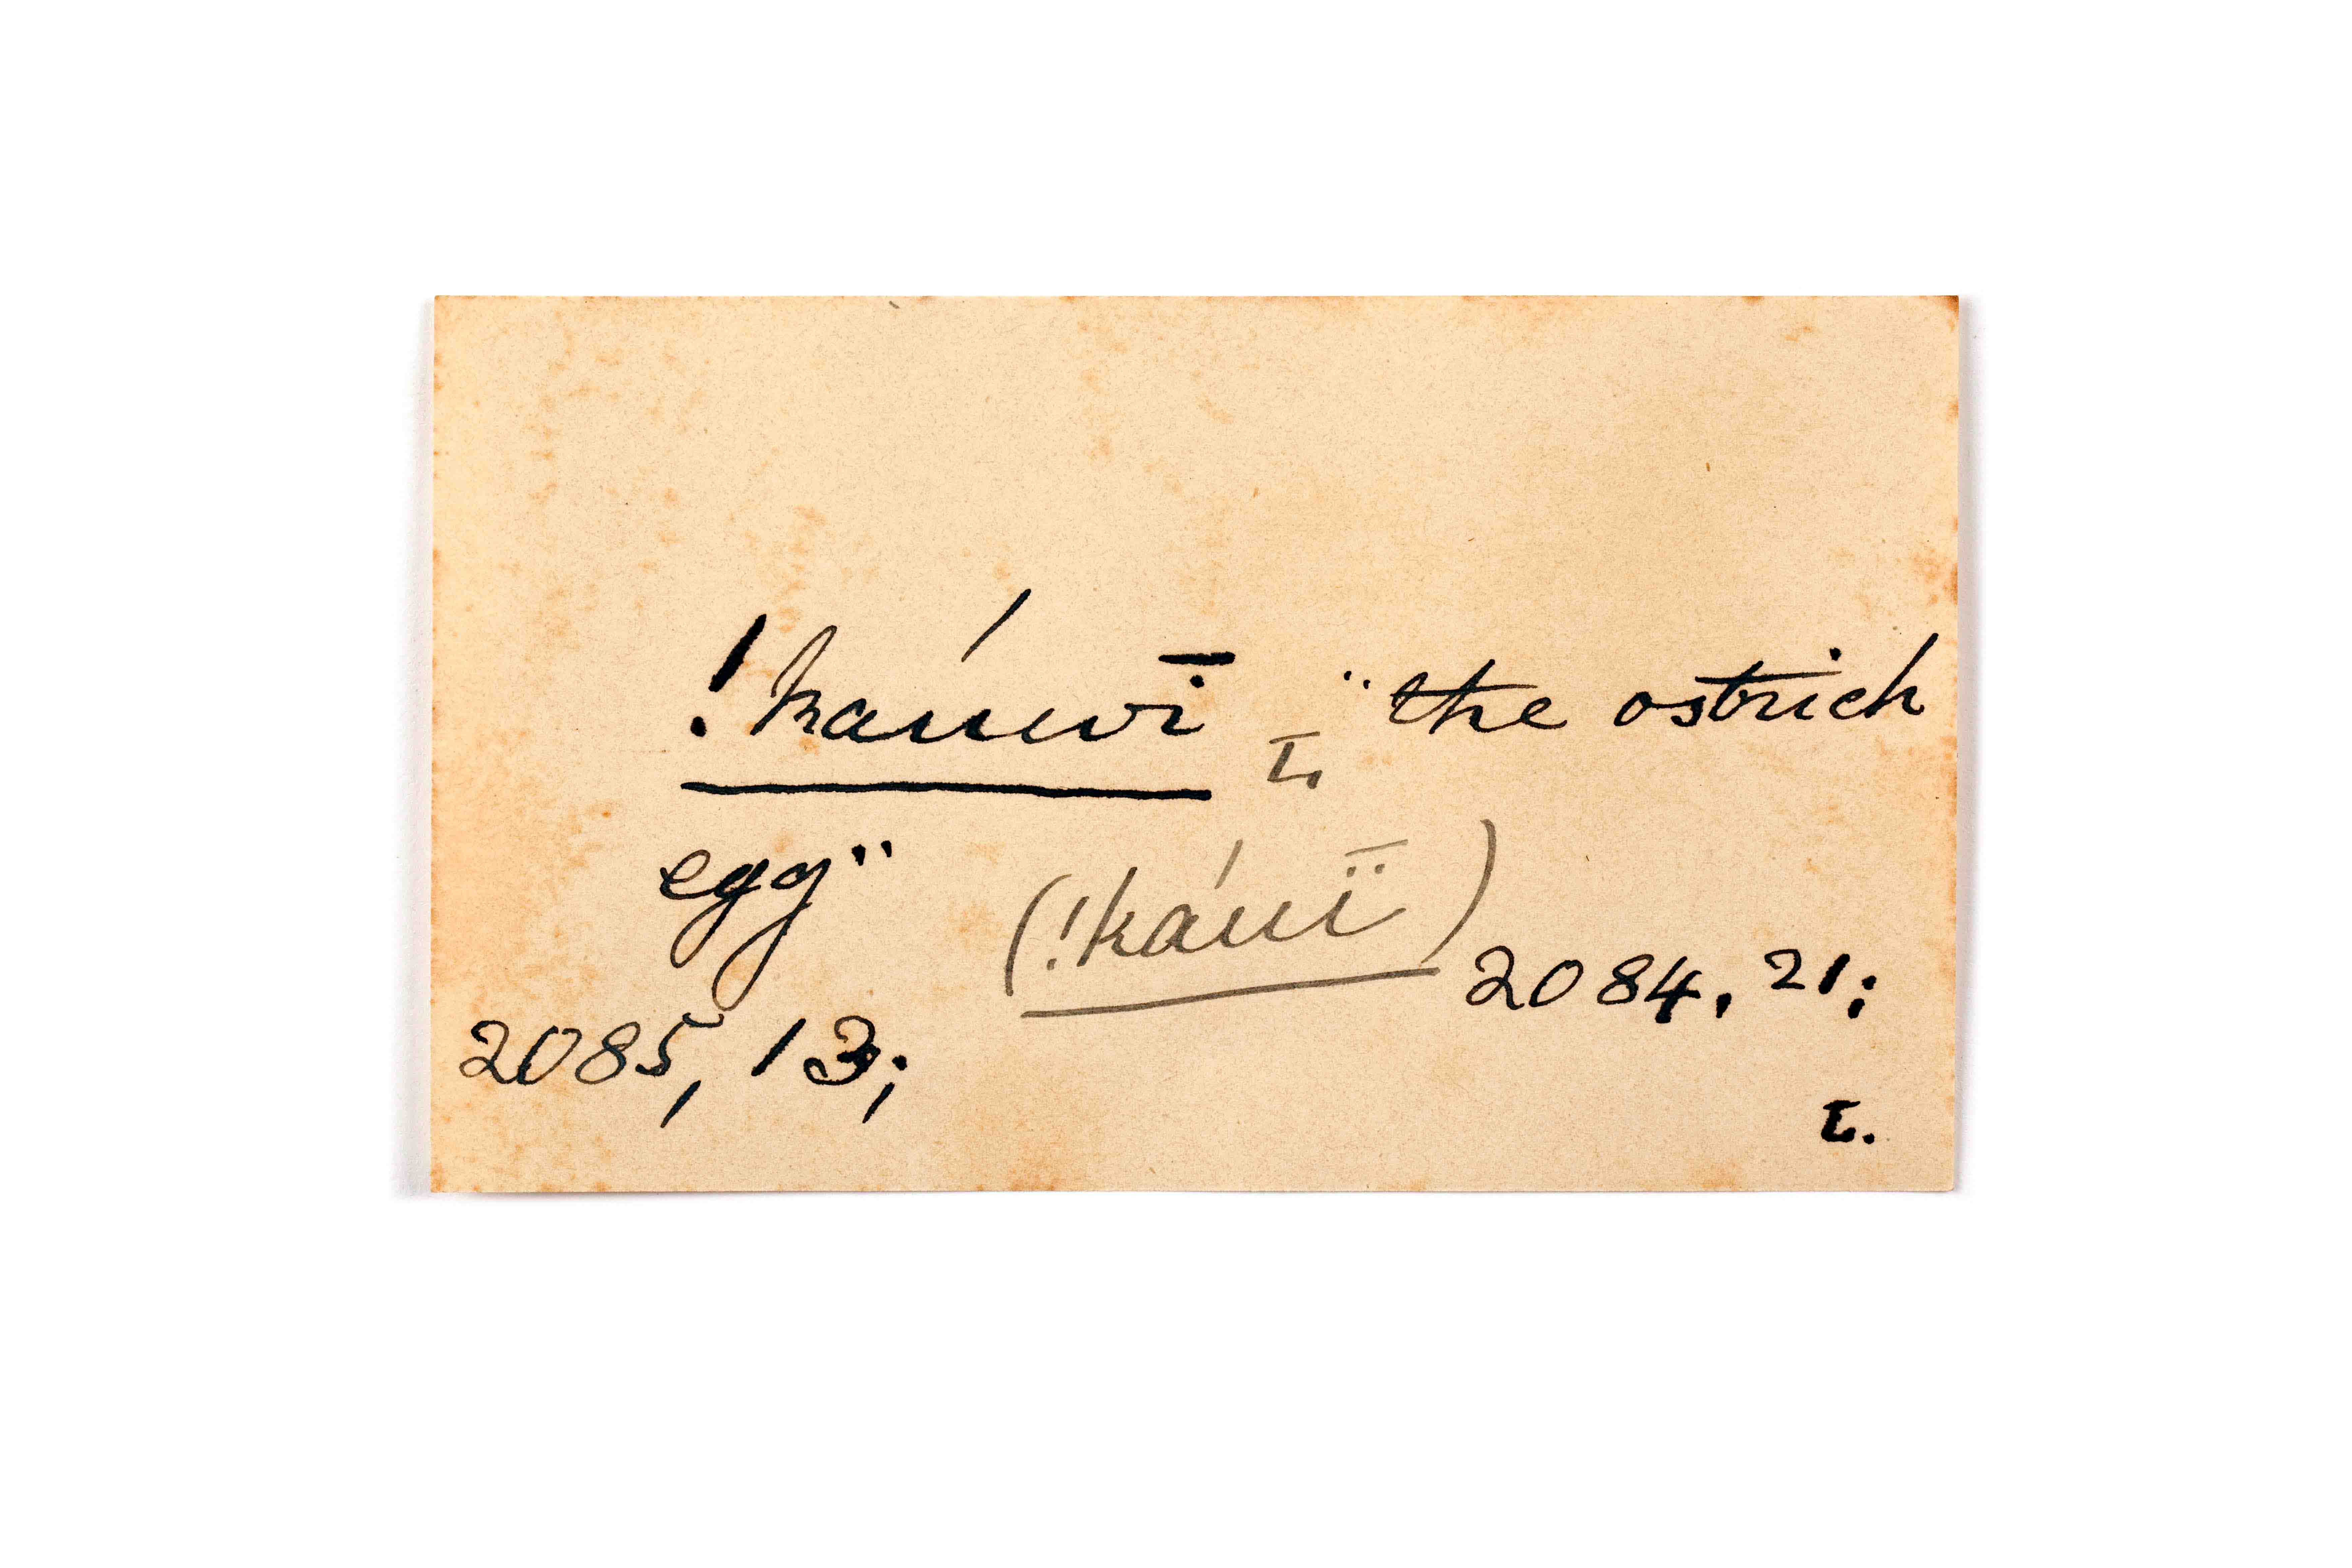 !káuwī I. "the ostrich
egg" (!káuī̈)
2084, 21;
2085, 13;
I.